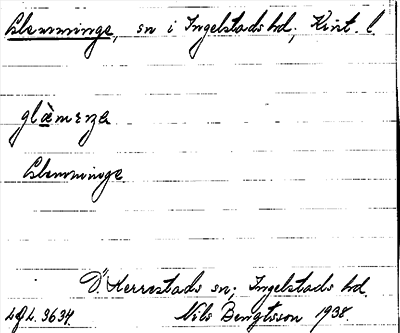 Glemminge, sn i Ingelstads hd, Krist. l.
glæ̀mɛŋa
Glemminge.
D'Herrestads sn; Ingelstads hd.
Nils Bengtsson 1938.